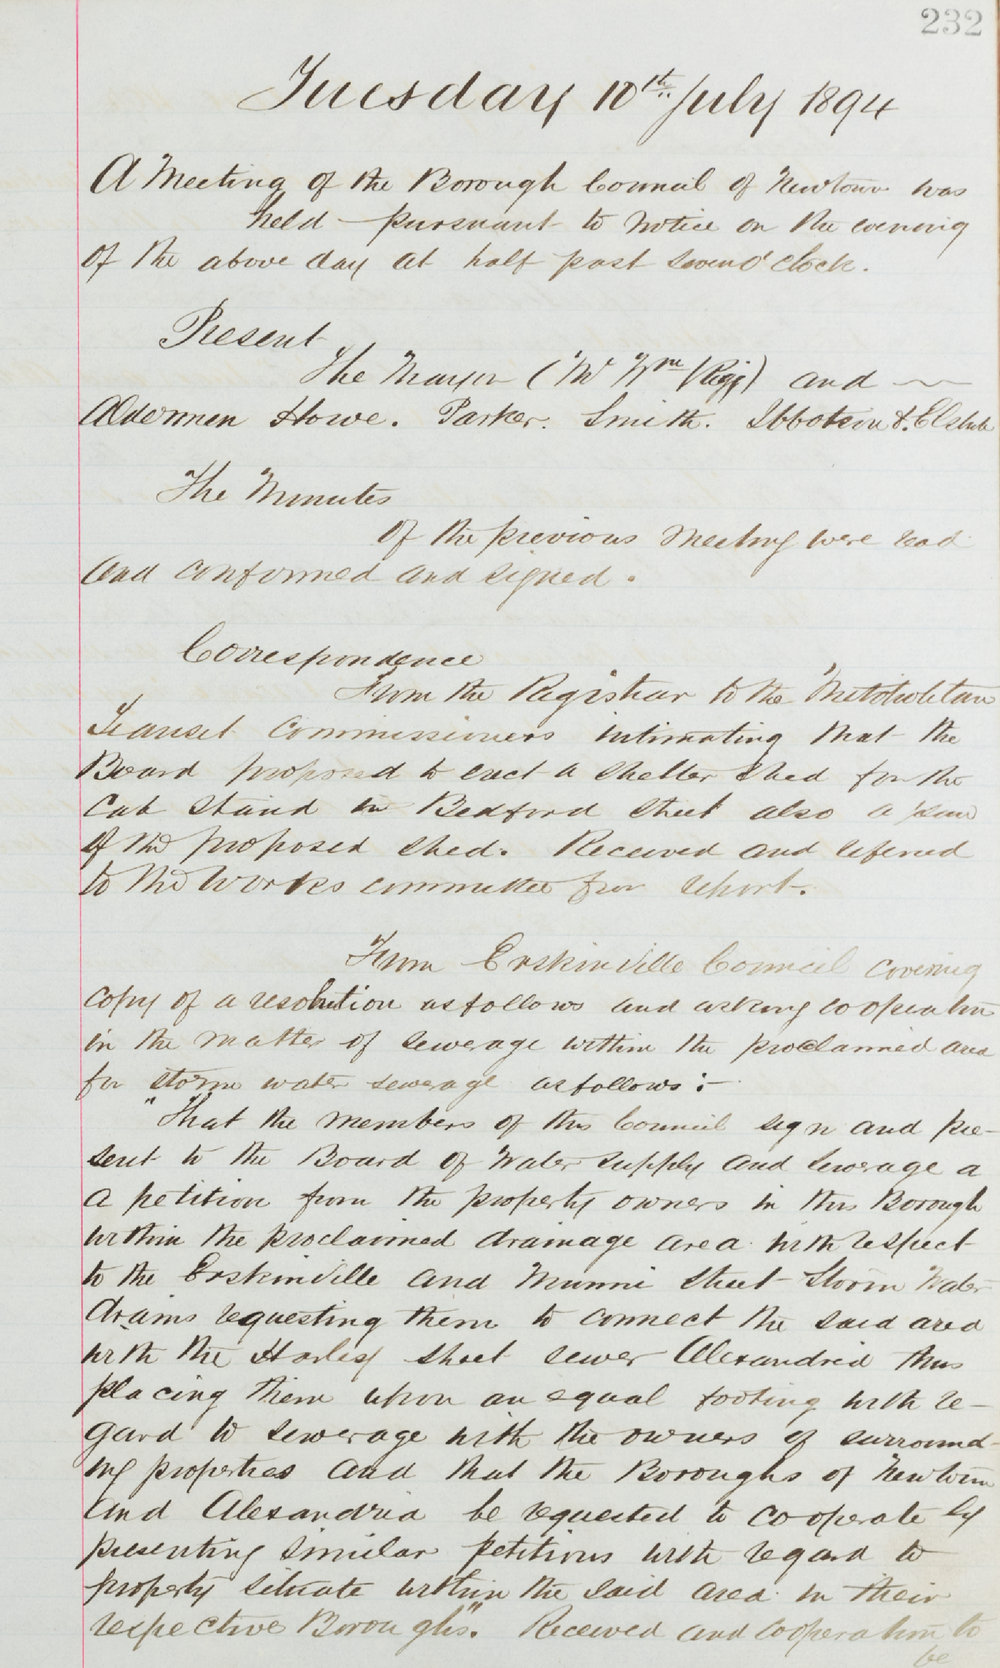 232
Tuesday 10th July 1894
A Meeting of the Borough Council of Newtown was
held pursuant to notice on the evening
of the above day at half past seven o'clock.
Present
The Mayor (Mr Wm Rigg) and
Aldermen Howe. Parker. Smith. Ibbotson &
The Minutes
of the previous Meeting were read
and confirmed and signed.
Correspondence
From the Registrar to the Metropolitan
Transit Commissioners intimating that the
Board proposed to erect a shelter shed for the
Cab Stand in Bedford Street also a plan
of the proposed shed. Received and referred
to the Works committee for report.
From Erskinville Council covering
copy of a resolution as follows and asking cooperation
in the matter of sewerage within the proclaimed area
for storm water sewerage as follows:-
"That the members of this Council sign and pre-
sent to the Board of Water supply and Sewerage a
a petition from the property owners in this Borough
within the proclaimed drainage area with respect
to the Erskinville and Munni Street Storm Water
drains requesting them to connect the said area
with the Harley street sewer Alexandria thus
placing them upon an equal footing with re-
gard to sewerage with the owners of surround-
ing properties and that the Boroughs of Newtown
and Alexandria be requested to cooperate by
presenting similar petitions with regard to
property situate within the said area in their
respective Boroughs". Received and cooperation to
be